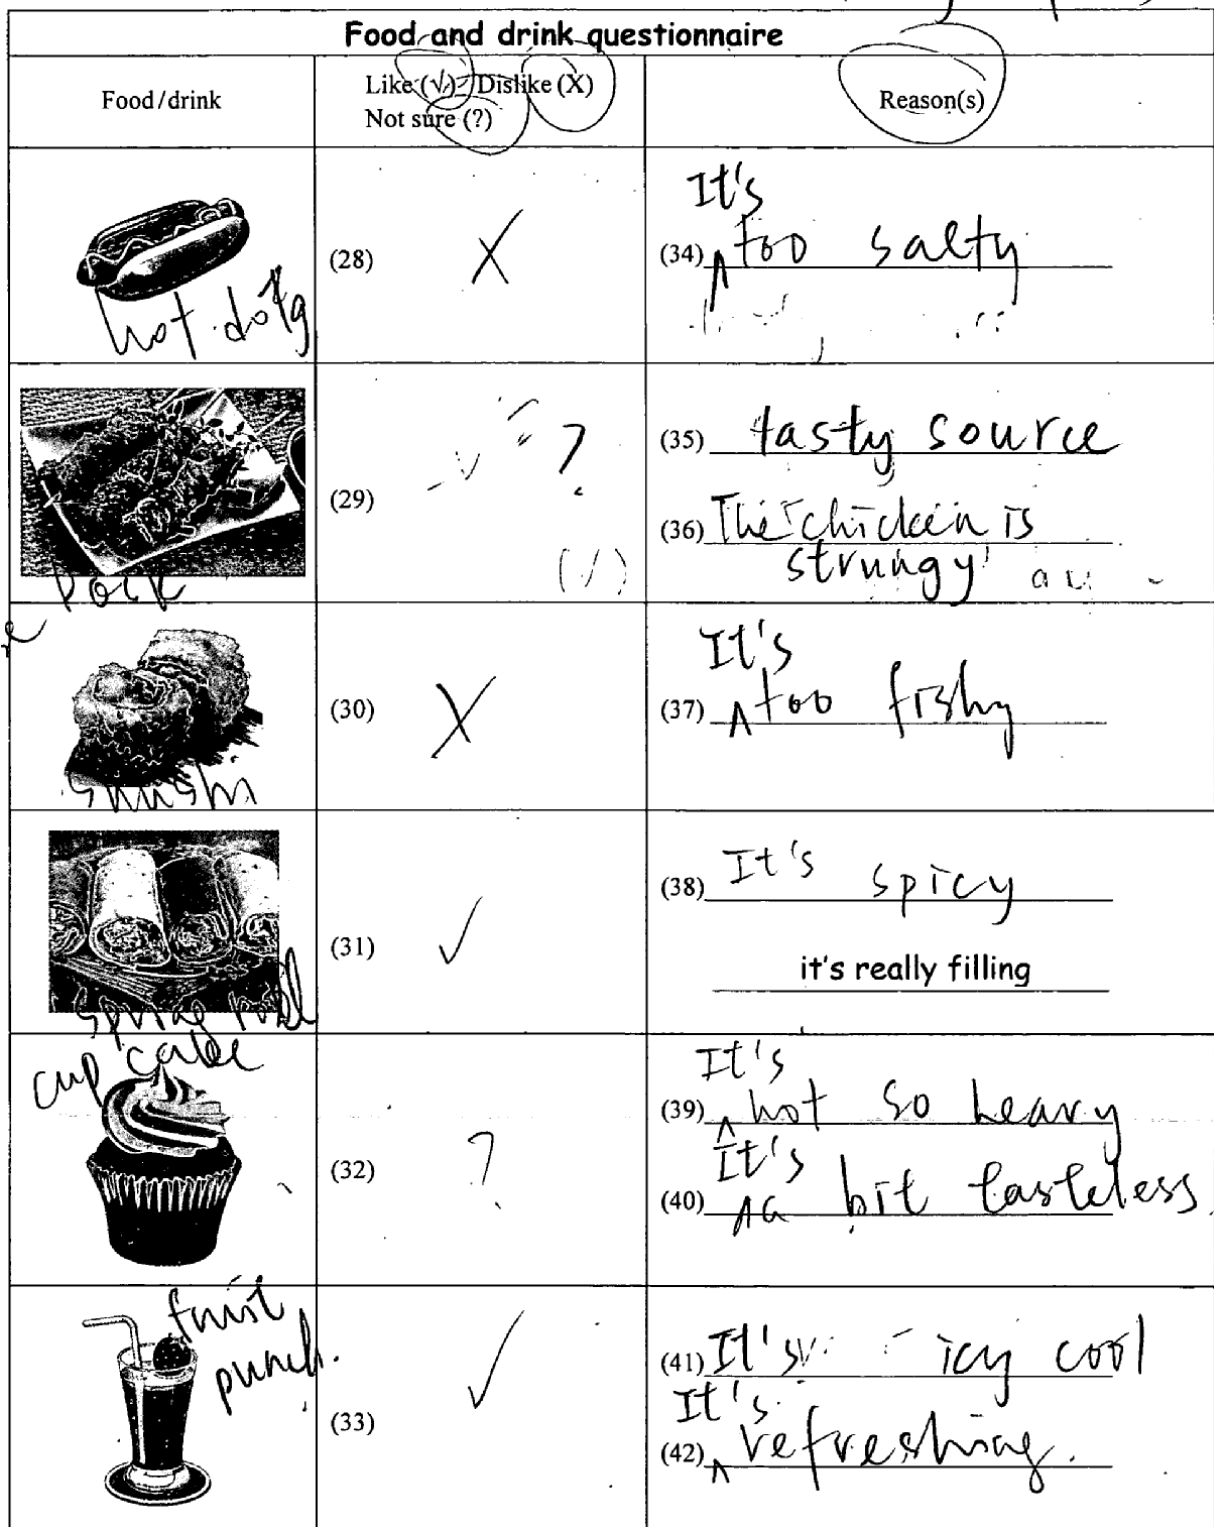 Food and drink questionnaire
Food/drink
Like (√) Dislike (X)
Not sure (?)
Reason(s)
hot dog
(28) X
It's
(34) too salty
(29) ?
(√)
(35) tasty source
(36) The chicken is
strungy
(30) X
It's
(37) too fishy
(31) √
(38) It's spicy
it's really filling
cup cake
(32) ?
It's
(39) not so heavy
It's
(40) a bit tasteless
punch.
(33) √
(41) It's icy cool
It's
(42) refreshing.